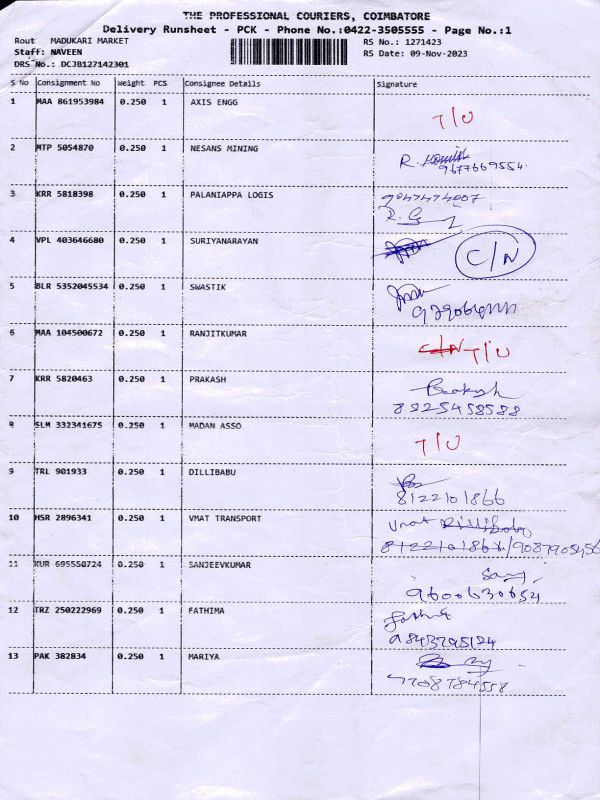 THE PROFESSIONAL COURIERS, COIMBATORE
Delivery Runsheet - PCK - Phone No.:0422-3505555 - Page No.:1
Rout MADUKARI MARKET
RS No.: 1271423
Staff: NAVEEN
RS Date: 09-Nov-2023
DRS No.: DCJB127142301
S No Consignment No Weight PCS Consignee Details Signature
1 MAA 861953984 0.250 1 AXIS ENGG T/U
2 MTP 5054870 0.250 1 NESANS MINING R.
9677669554
3 KRR 5818398 0.250 1 PALANIAPPA LOGIS
R.
4 VPL 403646680 0.250 1 SURIYANARAYAN C/N
5 BLR 5352045534 0.250 1 SWASTIK
6 MAA 104500672 0.250 1 RANJITKUMAR C/N T/U
7 KRR 5820463 0.250 1 PRAKASH Prakash
8925458588
8 SLM 332341675 0.250 1 MADAN ASSO T/U
9 TRL 901933 0.250 1 DILLIBABU
8122101866
10 HSR 2896341 0.250 1 VMAT TRANSPORT Vmat Dillibabu
8122101866/9087905456
11 KUR 695550724 0.250 1 SANJEEVKUMAR
9600630654
12 TRZ 250222969 0.250 1 FATHIMA
9843295124
13 PAK 382834 0.250 1 MARIYA
7708784558